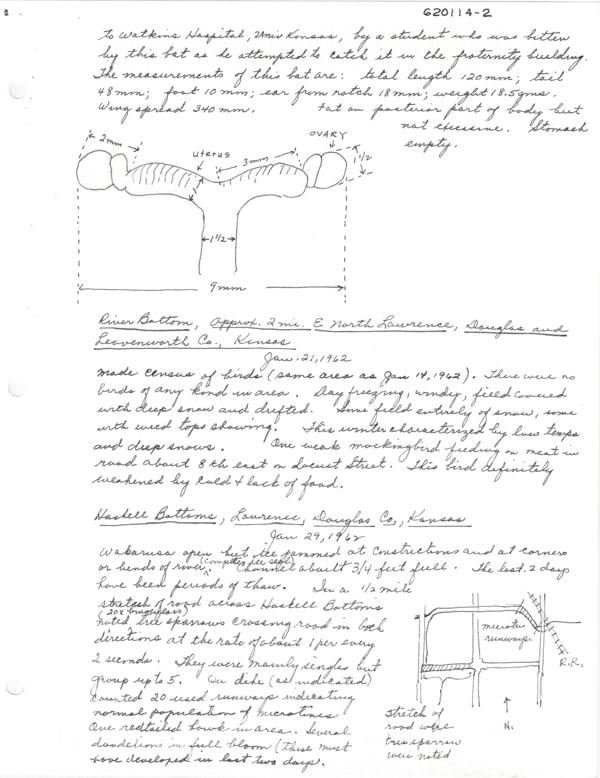 2
620114-2
to Watkins Hospital, Univ Kansas, by a student who was bitten
by this bat as he attempted to catch it in the fraternity building.
The measurements of this bat are: total length 120 mm; tail
48 mm; foot 10 mm; ear from notch 18 mm; weight 18.5 gms.
Wing spread 340 mm. Fat on posterior part of body but
not excessive. Stomach
empty.
2 mm
uterus
3 mm
OVARY
1 1/2
1 1/2
9 mm
River Bottom, approx. 2 mi. E North Lawrence, Douglas and
Leavenworth Co., Kansas
Jan. 21, 1962
Made census of birds (same area as Jan 14, 1962). There were no
birds of any kind in area. Day freezing, windy, field covered
with deep snow and drifted. Some field entirely of snow, some
with weed tops showing. This winter characterized by low temps
and deep snows. One weak mockingbird feeding on meat in
road about 8th east on Locust Street. This bird definitely
weakened by cold & lack of food.
Haskell Bottoms, Lawrence, Douglas Co., Kansas
Jan 29, 1962
Wakarusa open but ice jammed at constrictions and at corners
or bends of river. (complete ice seal) Channel about 3/4 feet full. The last 2 days
have been periods of thaw. In a 1/2 mile
stretch of road across Haskell Bottoms
(20x binoculars)
noted tree sparrows crossing road in both
directions at the rate of about 1 per every
2 seconds. They were mainly singles but
group up to 5. On dike (as indicated)
counted 20 used runways indicating
normal population of microtines
One redtailed hawk in area. Several
dandelions in full bloom (these must
have developed in last two days.
microtus
runways
R.R.
N.
Stretch of
road where
tree sparrow
were noted